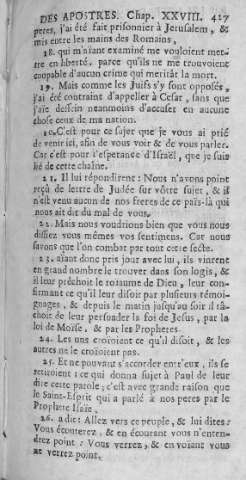 DES APOSTRES. Chap. XXVIII. 427
peres, j'ai été fait prisonnier à Jerusalem, &
mis entre les mains des Romains,
18. qui m'aiant examiné me vouloient met-
tre en liberté, parce qu'ils ne me trouvoient
coupable d'aucun crime qui meritât la mort.
19. Mais comme les Juifs s'y sont opposés,
j'ai été contraint d'appeller à Cesar, sans que
j'aie dessein neanmoins d'accuser en aucune
chose ceux de ma nation.
20. C'est pour ce sujet que je vous ai prié
de venir ici, afin de vous voir & de vous parler.
Car c'est pour l'esperance d'Israël, que je suis
lié de cette chaîne.
21. Il lui répondirent: Nous n'avons point
reçû de lettre de Judée sur vôtre sujet, & il
n'est venu aucun de nos freres de ce païs-là qui
nous ait dit du mal de vous.
22. Mais nous voudrions bien que vous nous
dissiez vous mêmes vos sentimens. Car nous
savons que l'on combat par tout cette secte.
23. aiant donc pris jour avec lui, ils vinrent
en grand nombre le trouver dans son logis, &
il leur prêchoit le roiaume de Dieu, leur con-
firmant ce qu'il leur disoit par plusieurs témoi-
gnages, & depuis le matin jusqu'au soir il tâ-
choit de leur persuader la foi de Jesus, par la
loi de Moïse, & par les Prophetes.
24. Les uns croioient ce qu'il disoit, & les
autres ne le croioient pas.
25. Et ne pouvant s'accorder entr'eux, ils se
retiroient: ce qui donna sujet à Paul de leur
dire cette parole; c'est avec grande raison que
le Saint-Esprit qui a parlé à nos peres par le
Prophete Isaïe,
26. a dit: Allez vers ce peuple, & lui dites:
Vous écouterez, & en écoutant vous n'enten-
drez point: Vous verrez, & en voiant vous
ne verrez point.